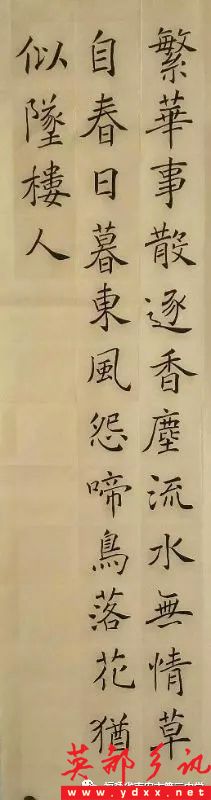 繁華事散逐香塵流水無情草
自春日暮東風怨啼鳥落花猶
似墜樓人
英都乡讯
www.ydxx.net